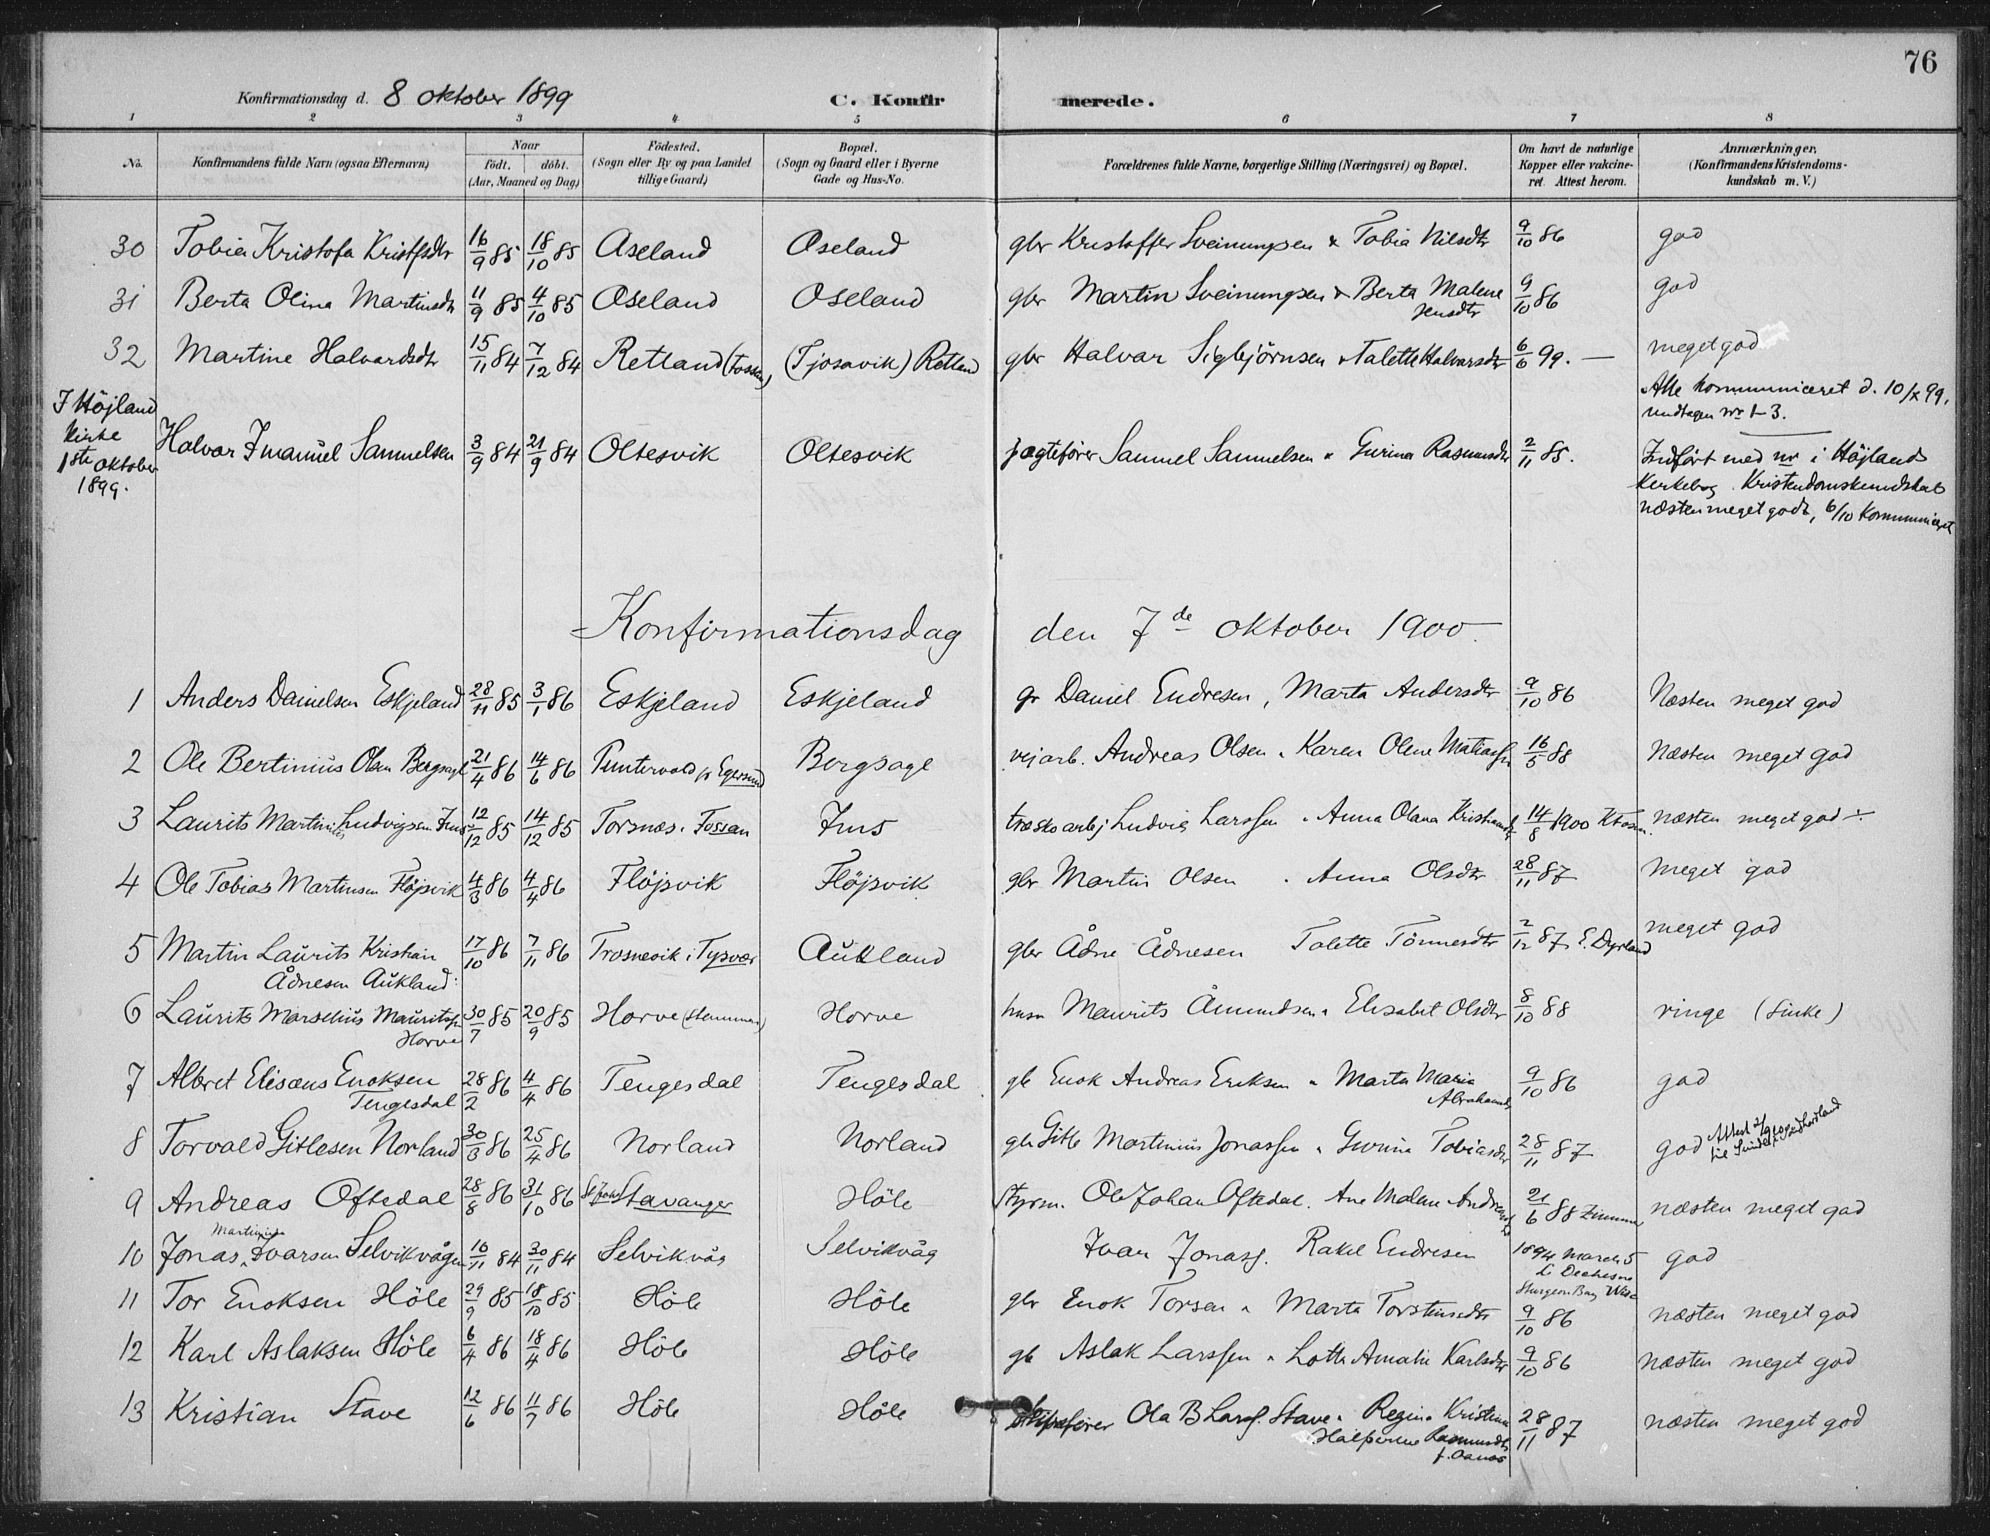 76
Konfirmationsdag d. 8 oktober 1899 C. Konfirmerede.
1 2 3 4 5 6 7 8
No. Konfirmandens fulde Navn (ogsaa Efternavn) Naar født. døbt. (Aar, Maaned og Dag) Fødested. (Sogn eller By og paa Landet tillige Gaard) Bopæl. (Sogn og Gaard eller i Byerne Gade og Hus-No. Forældrenes fulde Navne, borgerlige Stilling (Næringsvei) og Bopæl. Om havt de naturlige Kopper eller vakcineret. Attest herom. Anmærkninger. (Konfirmandens Kristendomskundskab m. V.)
30 Tobia Kristofa Kristfsdtr 16/9 85 18/10 85 Oseland Oseland gbr Kristoffer Sveinungsen & Tobia Nilsdtr 9/10 86 god
31 Berta Olina Martinsdtr 11/9 85 4/10 85 Oseland Oseland gbr Martin Sveinungsen & Berta Malene Jensdtr 9/10 86 god
32 Martine Halvardsdtr 15/11 84 7/12 84 Retland (Fossan) (Tjosavik) Retland gbr Halvar Sigbjørnsen & Talette Halvarsdtr 6/6 99. — meget god
Alle kommuniceret d. 10/X 99,
undtagen nr 1-3.
I Höjland
Kirke
1ste oktober
1899.
Halvor Imanuel Samuelsen 3/9 84 21/9 84 Oltesvik Oltesvik jægtefører Samuel Samuelsen & Gurina Rasmusdtr 2/11 85. Indført med nr i Höjlands
Kirkebog. Kristendomskundskab
næsten meget godt, 6/10 Kommuniceret
Konfirmationsdag den 7de oktober 1900.
1 Anders Danielsen Eskjeland 28/11 85 3/1 86 Eskjeland Eskjeland gr Daniel Endresen, Marta Andersdtr 9/10 86 Næsten meget god
2 Ole Bertinius Olsen Bergsagel 21/4 86 14/6 86 Puntervold pr Egersund Bergsage vejarb. Andreas Olsen & Karen Olene 16/5 88 Næsten meget god
3 Laurits Martinius Ludvigsen Ims 12/12 85 14/12 85 Torsnæs. Fossan Ims træskoarbj Ludvig Larssen & Anna Olana 14/8 1900 næsten meget god ÷
4 Ole Tobias Martinsen Fløjsvik 4/3 86 4/4 86 Fløjsvik Fløjsvik gbr Martin Olsen & Anna Olsdtr 28/11 87 meget god
5 Martin Laurits Kristian Ådnesen Aukland 17/10 86 7/11 86 Trosnevik i Tysvær Aukland gbr Ådne Ådnesen Talette Tönnesdtr 2/12 87 E. Dyrland meget god
6 Laurits Marselius Mauritssn Horve 30/7 85 20/9 85 Horve Horve husm Maurits Åmundsen & Elisabet Olsdtr 8/10 88 ringe (sinke)
7 Albret Elisæus Enoksen Tengesdal 28/2 86 4/4 86 Tengesdal Tengesdal gb Enok Andreas Eriksen & Marta Maria Abrahamsdtr 9/10 86 god
8 Torvald Gitlesen Norland 30/3 86 25/4 86 Norland Norland gbr Gitle Martinius Jonassen & Gurina Tobiasdtr 28/11 87 god Attest
9 Andreas Oftedal 28/8 86 31/10 86 Stavanger Höle Styrm. Ole Johan Oftedal. Ane Malene 21/6 88 næsten meget god
10 Jonas Martinius Ivarsen Selvikvågen 16/11 84 30/11 84 Selvikvåg Selvikvåg Ivar Jonass. Rakel Endresen 1894 March 5 Sturgeon Bay Wisc god
11 Tor Enoksen Höle 29/9 85 18/10 85 Höle Höle gbr Enok Torsen & Marta Torstensdtr 9/10 86 næsten meget god
12 Karl Aslaksen Höle 6/4 86 18/4 86 Höle Höle gb Aslak Larssen & Lotte Amalie Karlsdtr 9/10 86 næsten meget god
13 Kristian Stave 12/6 86 11/7 86 Höle Höle skipsfører Ola B Larss. Stave & Regine Kristine Rasmusdtr 28/11 87 næsten meget god